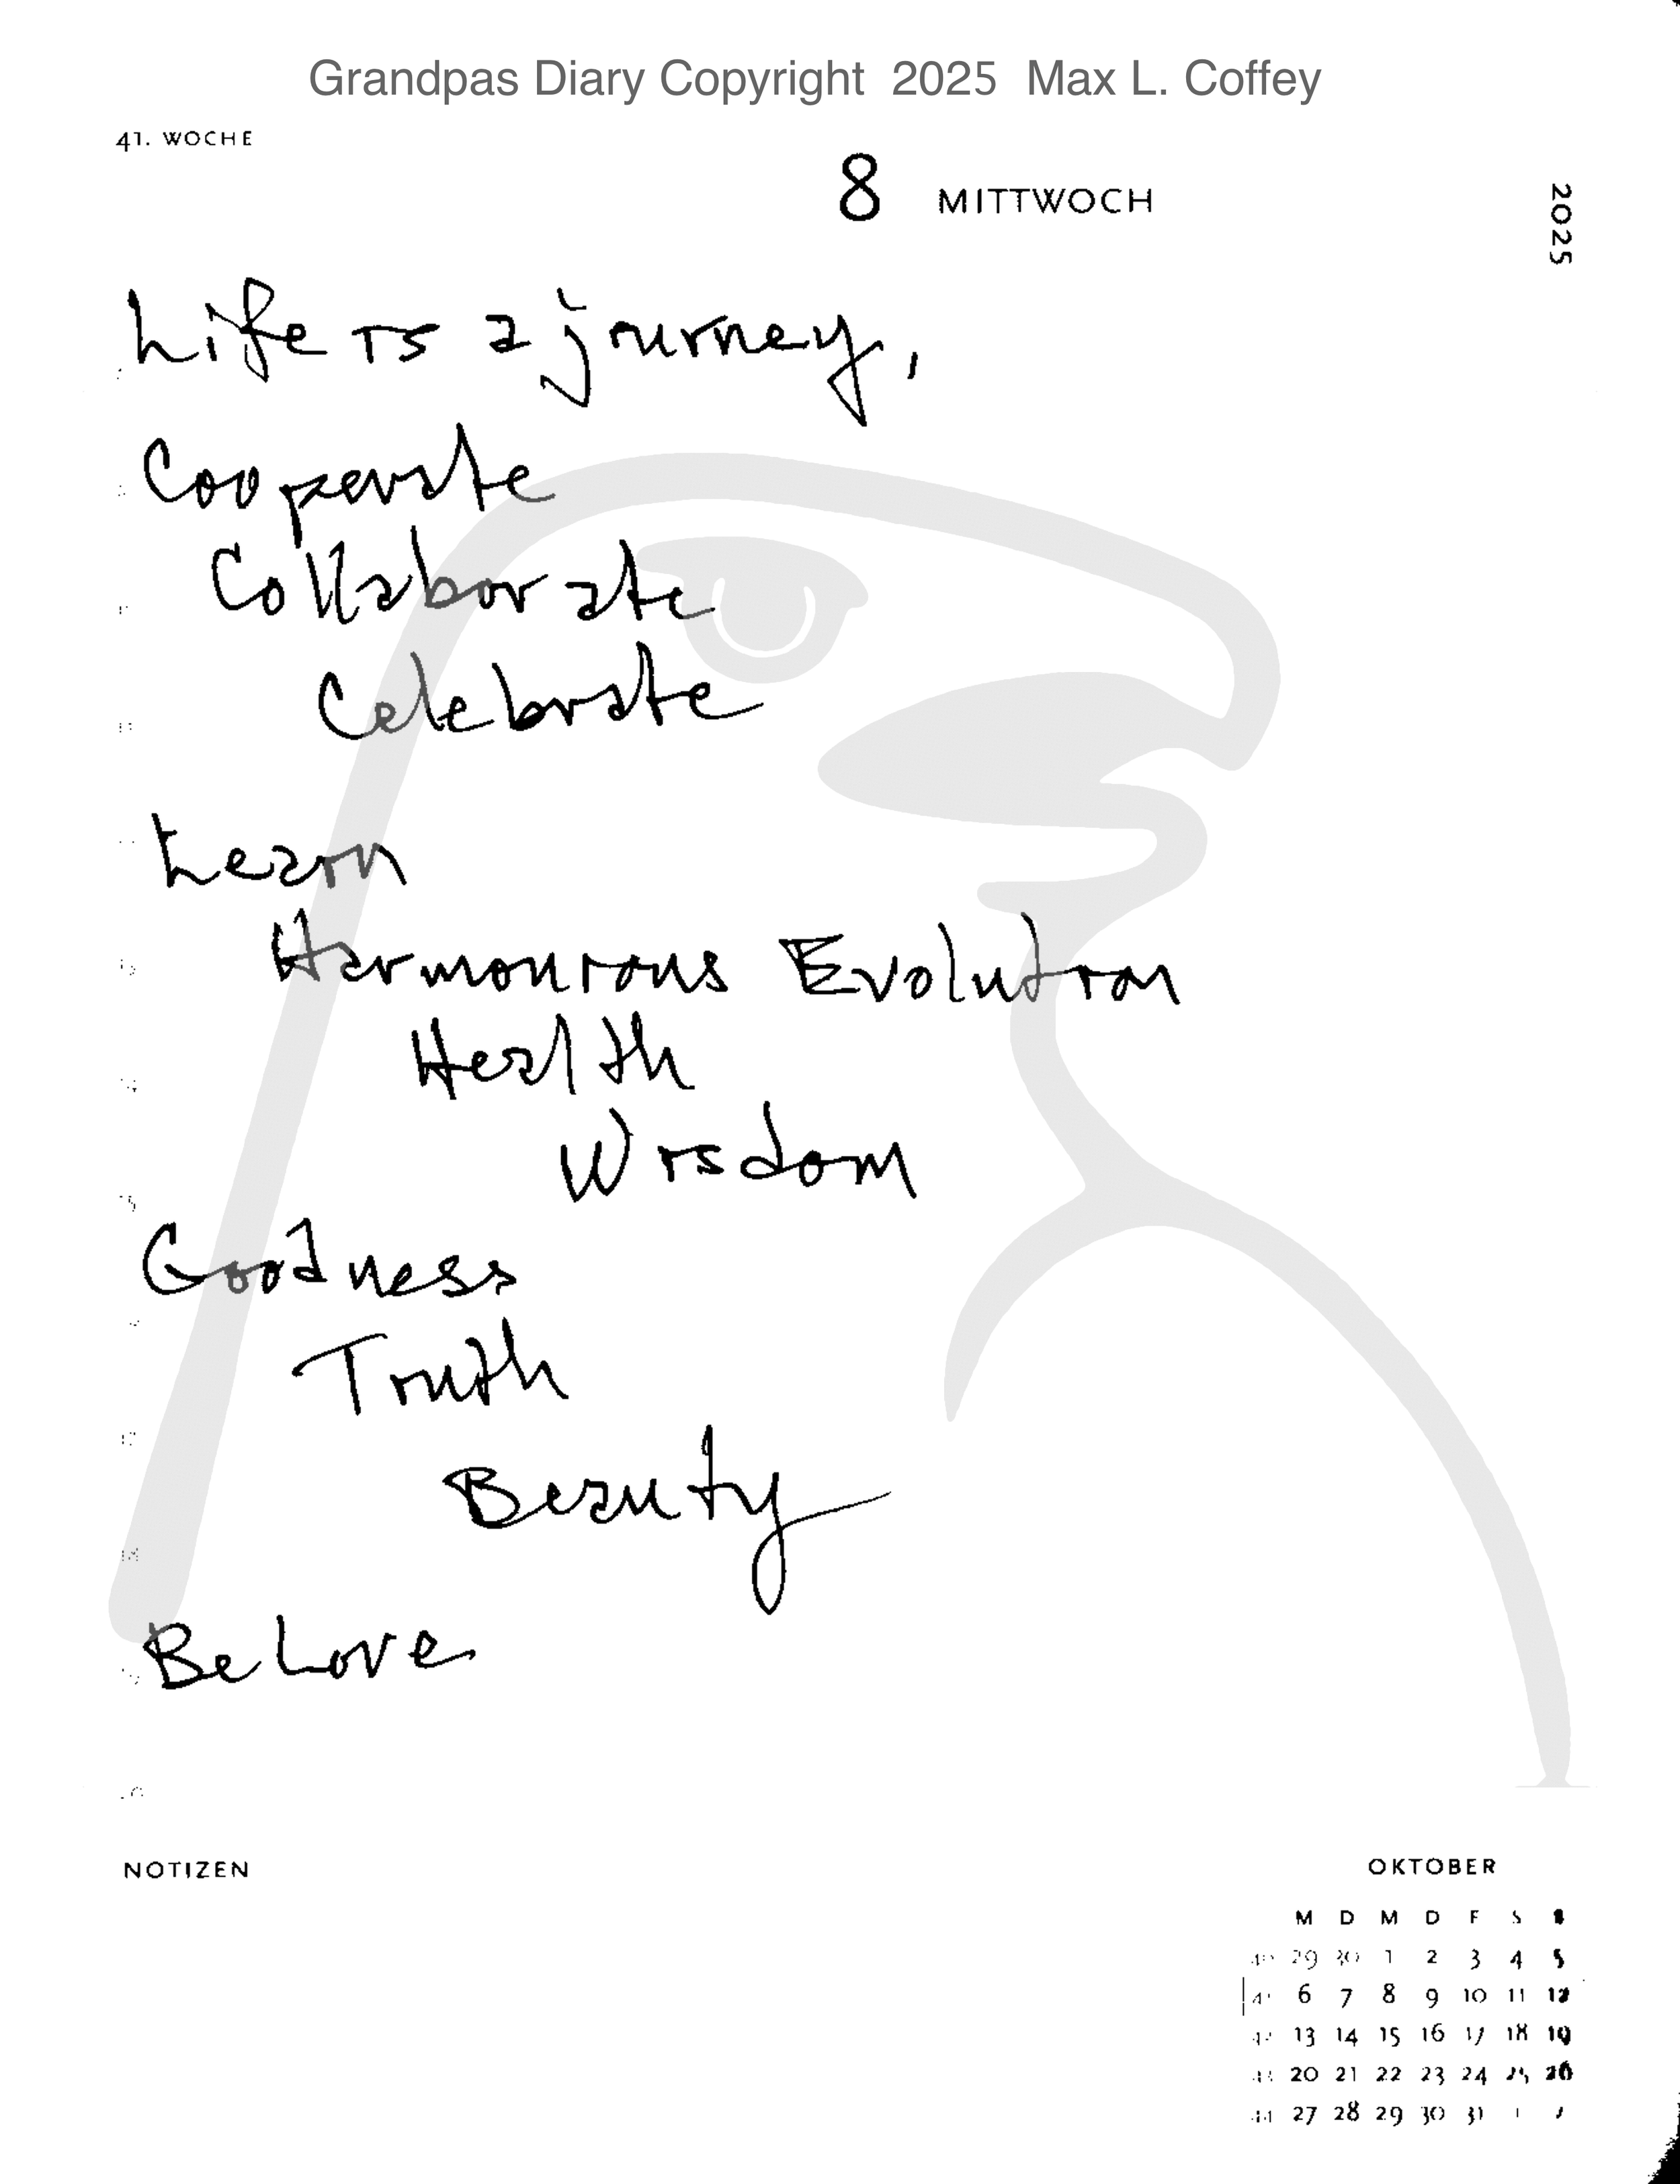 Grandpas Diary Copyright 2025 Max L. Coffey
41. WOCHE
8 MITTWOCH
2025
Life is a journey,
Cooperate
Collaborate
Celebrate
Learn
Harmonious Evolution
Health
Wisdom
Goodness
Truth
Beauty
Be Love
NOTIZEN
OKTOBER
M D M D F S S
29 30 1 2 3 4 5
41 6 7 8 9 10 11 12
13 14 15 16 17 18 19
20 21 22 23 24 25 26
44 27 28 29 30 31 1 2